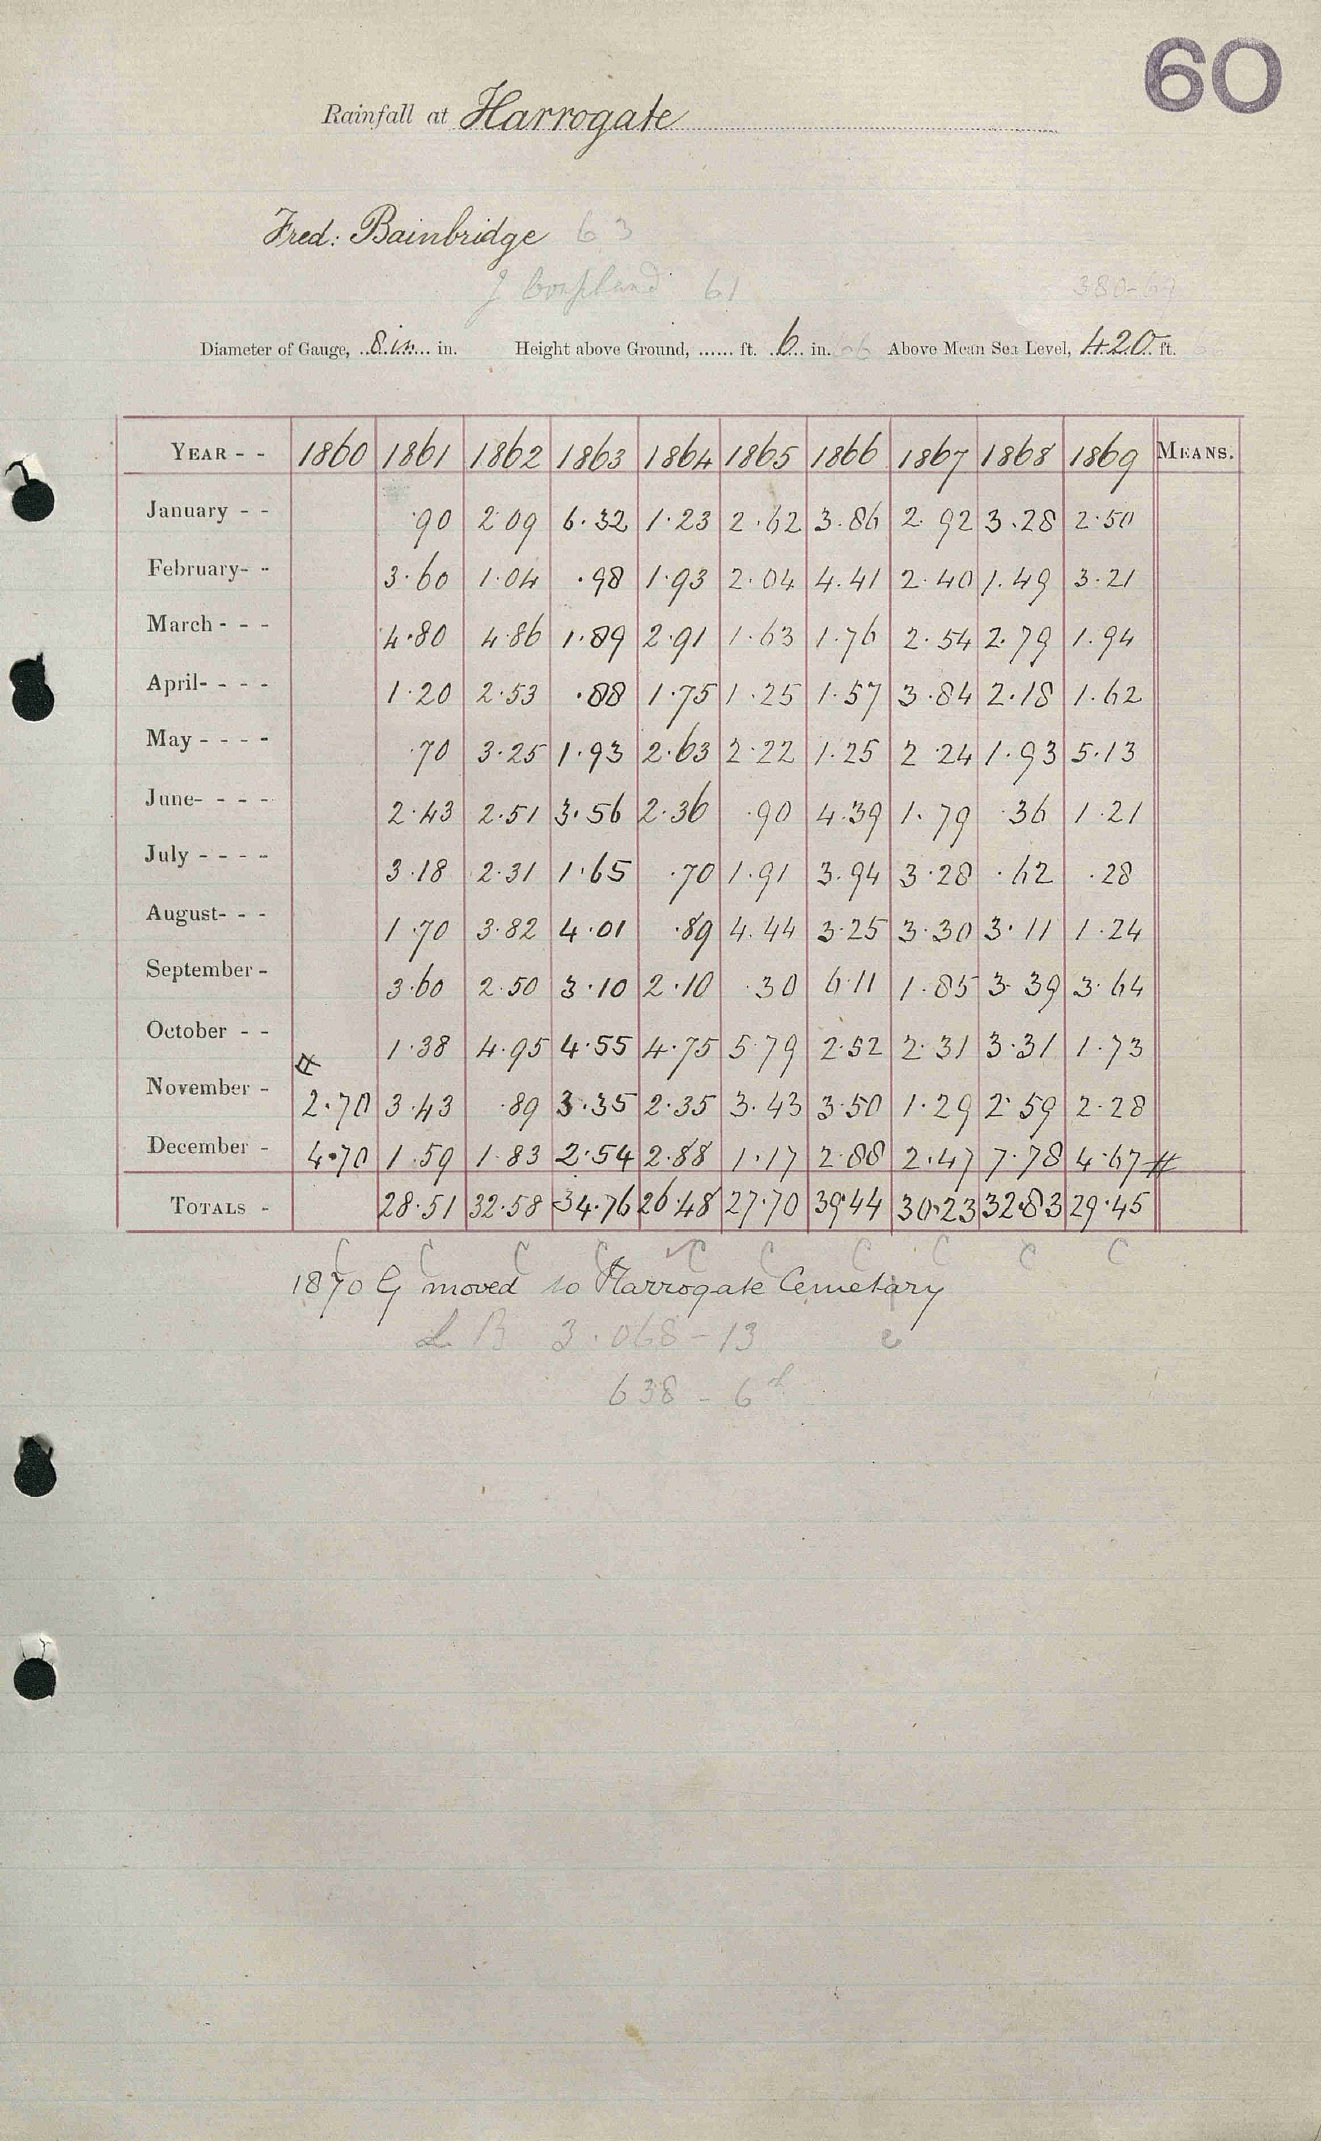 60
Rainfall at Harrogate
Fred: Bainbridge 63
J Coupland 61 380-69
Diameter of Gauge, 8 in in. Height above Ground, ...... ft. 6 in. 66 Above Mean Sea Level, 420 ft.
YEAR - - 1860 1861 1862 1863 1864 1865 1866 1867 1868 1869 MEANS.
January - - .90 2.09 6.32 1.23 2.62 3.86 2.92 3.28 2.50
February- - 3.60 1.04 .98 1.93 2.04 4.41 2.40 1.49 3.21
March - - - 4.80 4.86 1.89 2.91 1.63 1.76 2.54 2.79 1.94
April- - - - 1.20 2.53 .88 1.75 1.25 1.57 3.84 2.18 1.62
May - - - - .70 3.25 1.93 2.63 2.22 1.25 2.24 1.93 5.13
June- - - - 2.43 2.51 3.56 2.36 .90 4.39 1.79 .36 1.21
July - - - - 3.18 2.31 1.65 .70 1.91 3.94 3.28 .62 .28
August- - - 1.70 3.82 4.01 .89 4.44 3.25 3.30 3.11 1.24
September - 3.60 2.50 3.10 2.10 .30 6.11 1.85 3.39 3.64
October - - 1.38 4.95 4.55 4.75 5.79 2.52 2.31 3.31 1.73
November - 2.70 3.43 .89 3.35 2.35 3.43 3.50 1.29 2.59 2.28
December - 4.70 1.59 1.83 2.54 2.88 1.17 2.88 2.47 7.78 4.67 #
TOTALS - 28.51 32.58 34.76 26.48 27.70 39.44 30.23 32.83 29.45
C C C C C C C C C C
1870 G moved to Harrogate Cemetary
L B 3.068-13
638 - 6